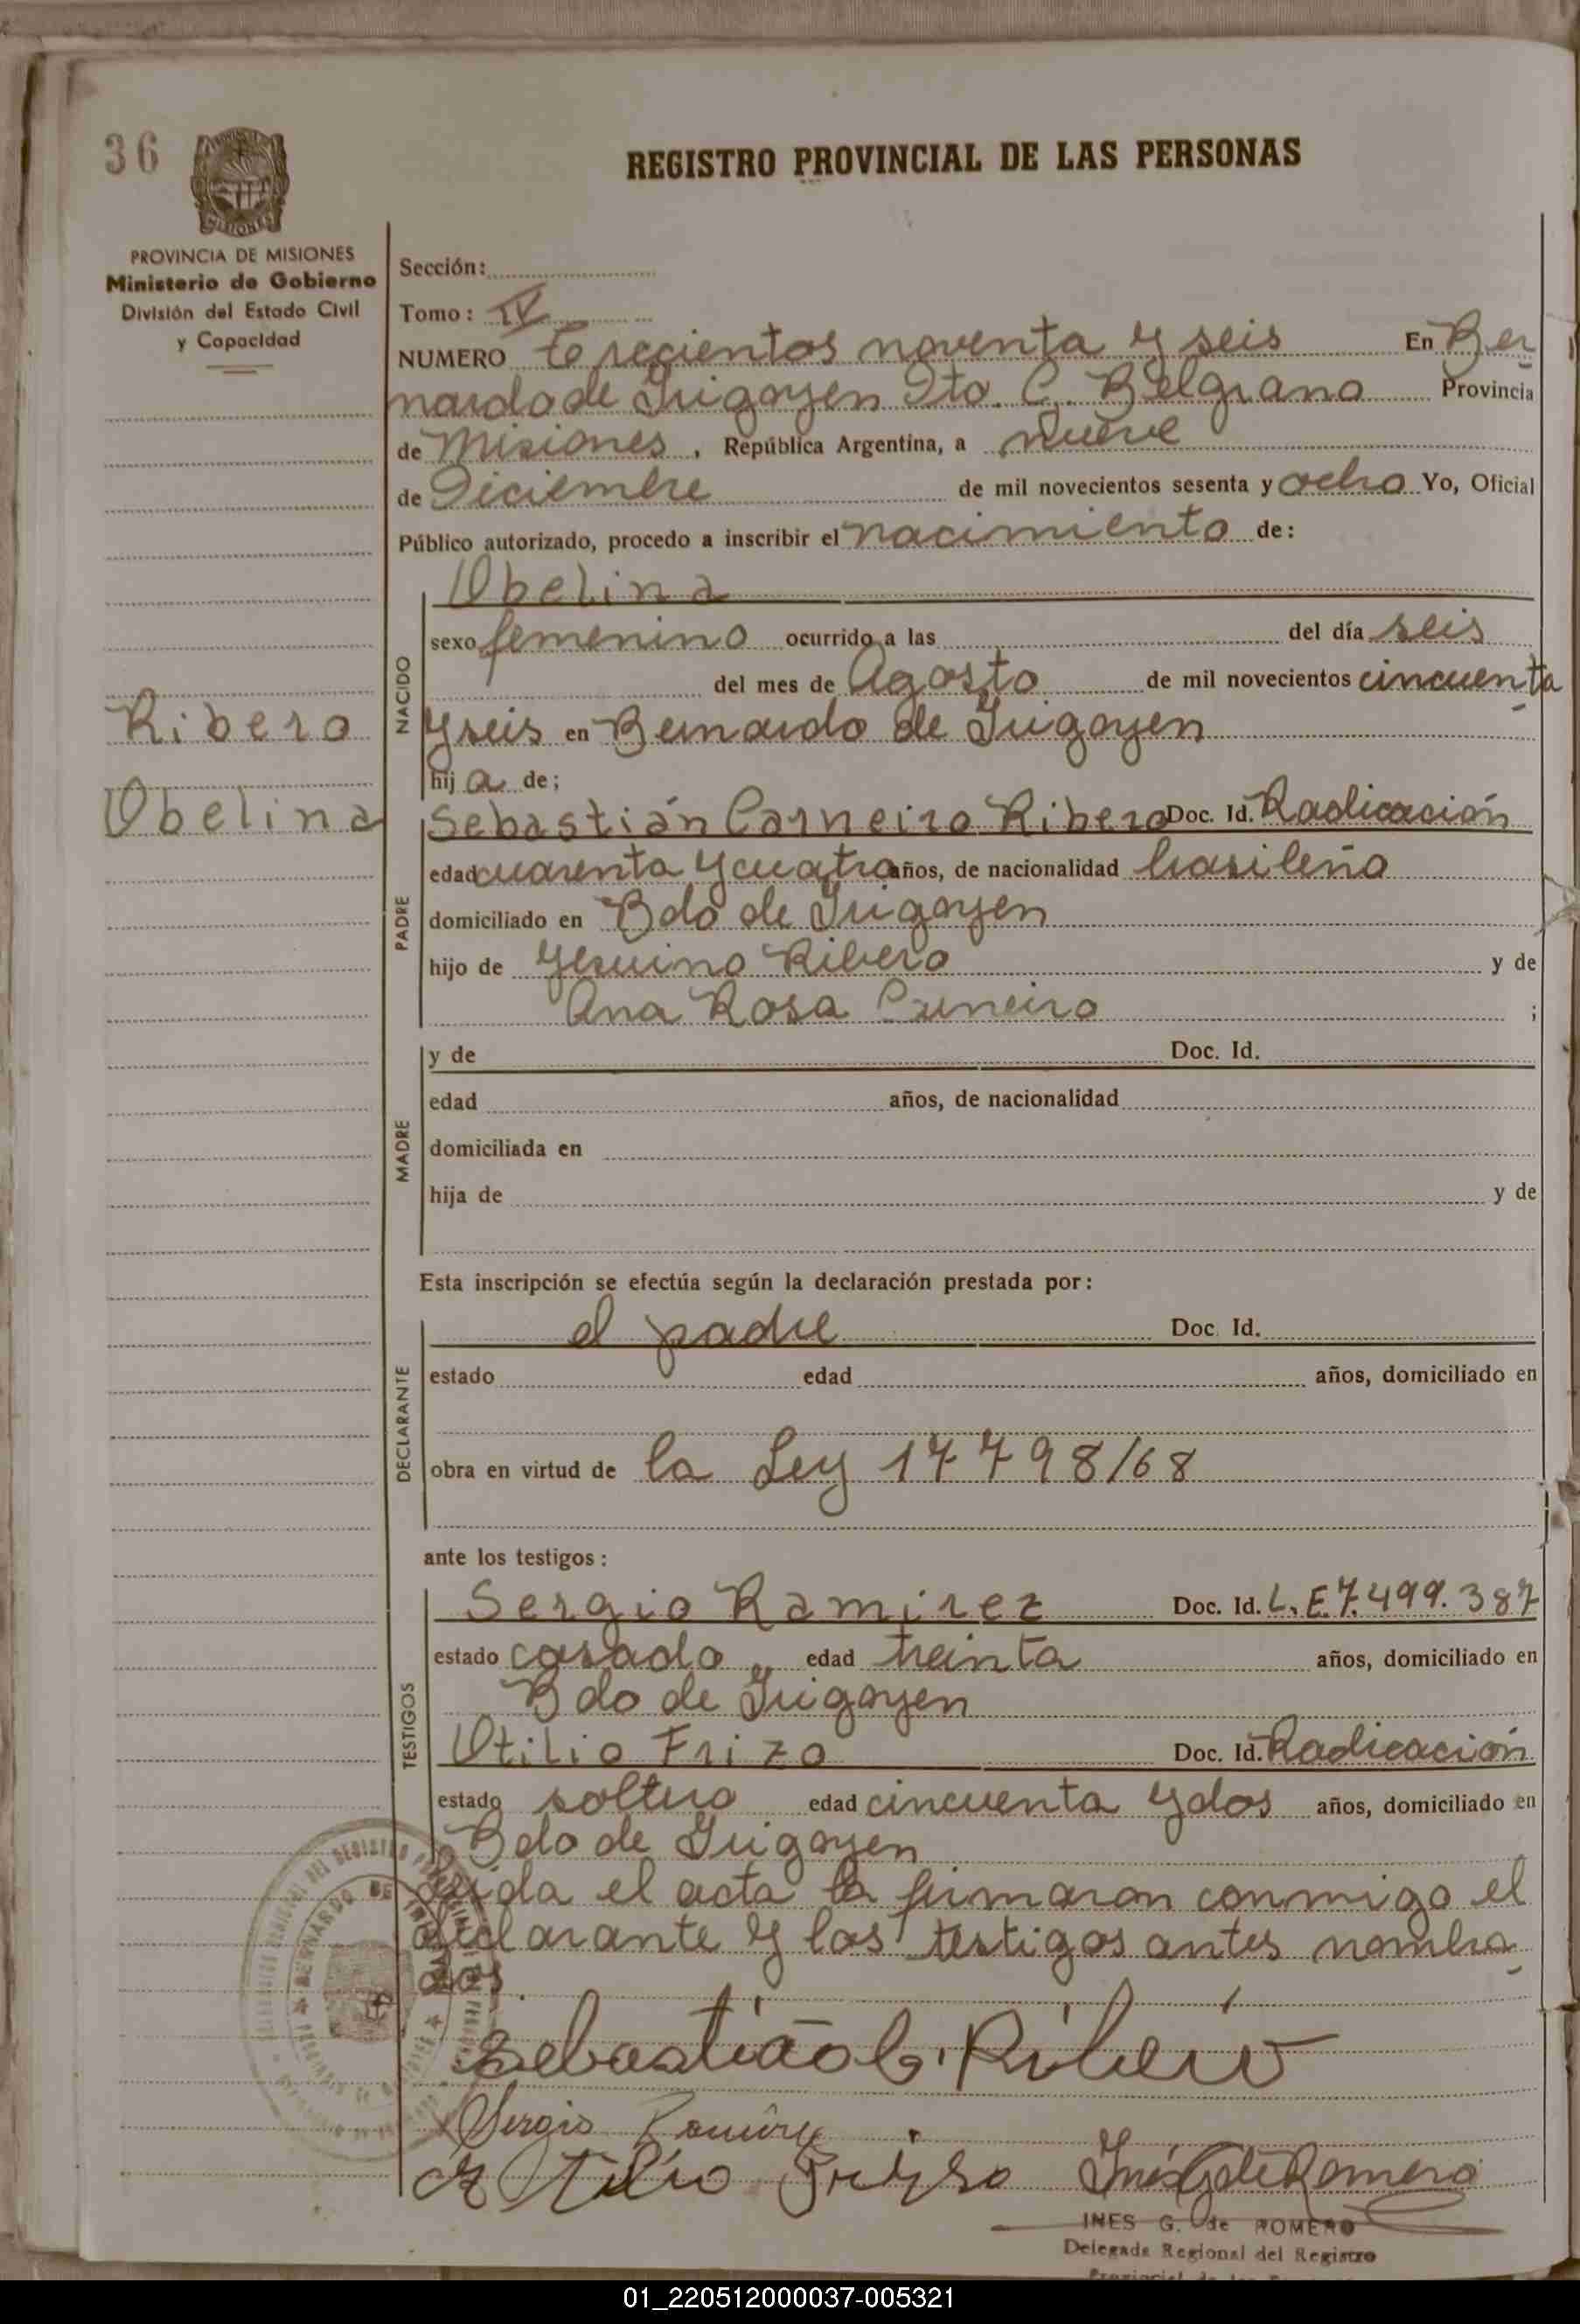 36
REGISTRO PROVINCIAL DE LAS PERSONAS
PROVINCIA DE MISIONES
Ministerio de Gobierno
División del Estado Civil
y Capacidad
Sección:
Tomo: IV
NUMERO trecientos noventa y seis En Ber
nardo de Irigoyen Dto. G. Belgrano Provincia
de Misiones, República Argentina, a nueve
de Diciembre de mil novecientos sesenta y ocho Yo, Oficial
Público autorizado, procedo a inscribir el nacimiento de:
Obelina
NACIDO
sexo femenino ocurrido a las del día seis
del mes de Agosto de mil novecientos cincuenta
y seis en Bernardo de Irigoyen
hija de;
Ribero
Obelina
PADRE
Sebastián Carneiro Ribero Doc. Id. Radicación
edad cuarenta y cuatro años, de nacionalidad brasileña
domiciliado en Bdo de Irigoyen
hijo de Yesuino Ribero y de
Ana Rosa Carneiro ;
MADRE
y de Doc. Id.
edad años, de nacionalidad
domiciliada en
hija de y de
Esta inscripción se efectúa según la declaración prestada por:
DECLARANTE
el padre Doc. Id.
estado edad años, domiciliado en
obra en virtud de la Ley 17798/68
ante los testigos:
TESTIGOS
Sergio Ramirez Doc. Id. L.E.7.499.387
estado casado edad treinta años, domiciliado en
Bdo de Irigoyen
Otilio Frizo Doc. Id. Radicación
estado soltero edad cincuenta y dos años, domiciliado en
Bdo de Irigoyen
el acta la firmaron conmigo el
declarante y los testigos antes nombra
dos.
Sebastião C. Ribeiro
Sergio Ramirez
Otilio Frizzo Inés G de Romero
INES G. de ROMERO
Delegada Regional del Registro
01_220512000037-005321